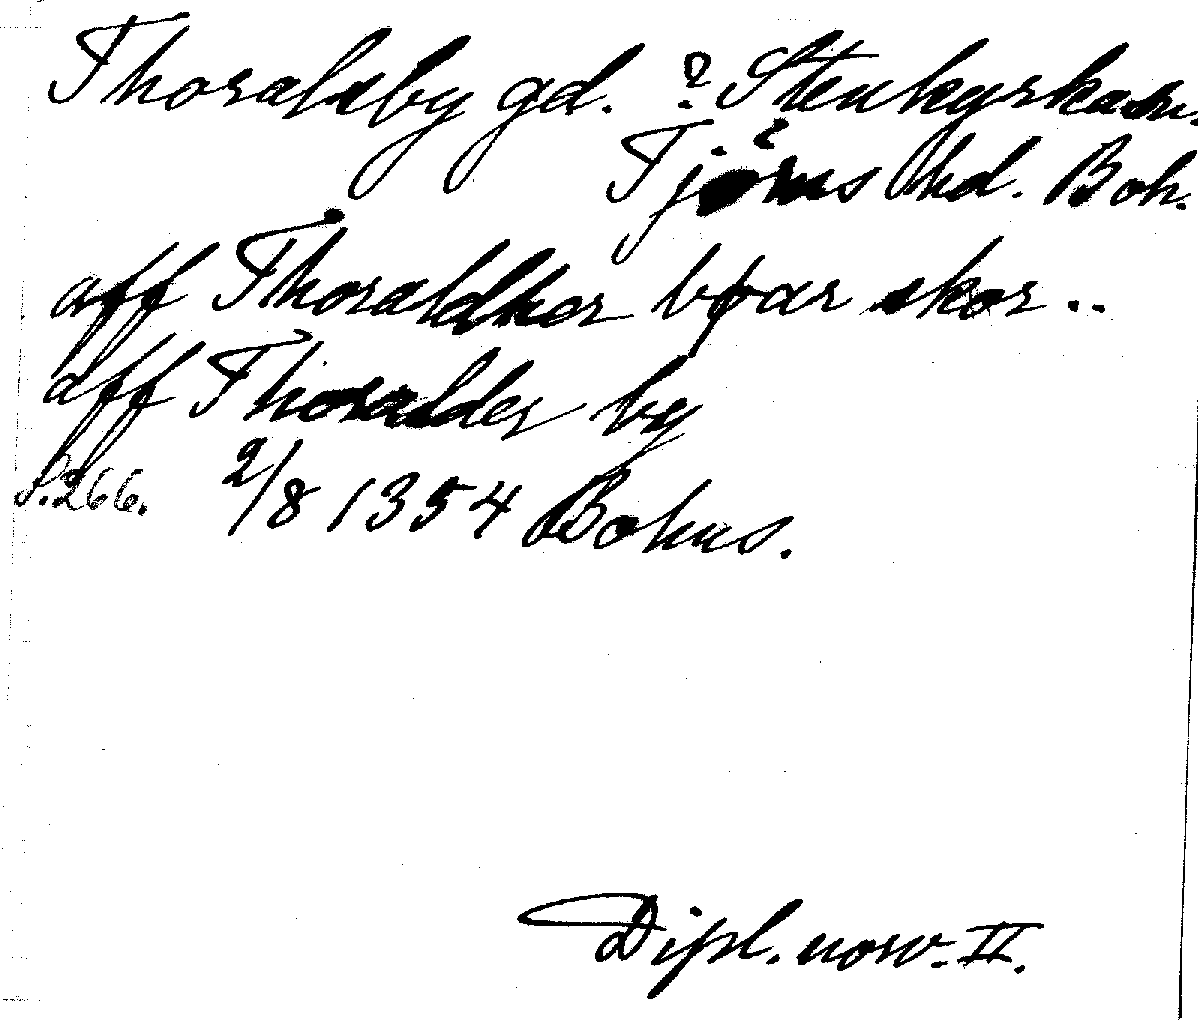 Thoralsby gd. ? Stenkyrka sn.
Tjörns hd. Boh.
aff Thoraldher bøar skor ..
aff Thoralder by
S. 266. 2/8 1354 Bohus.
Dipl. norv. II.